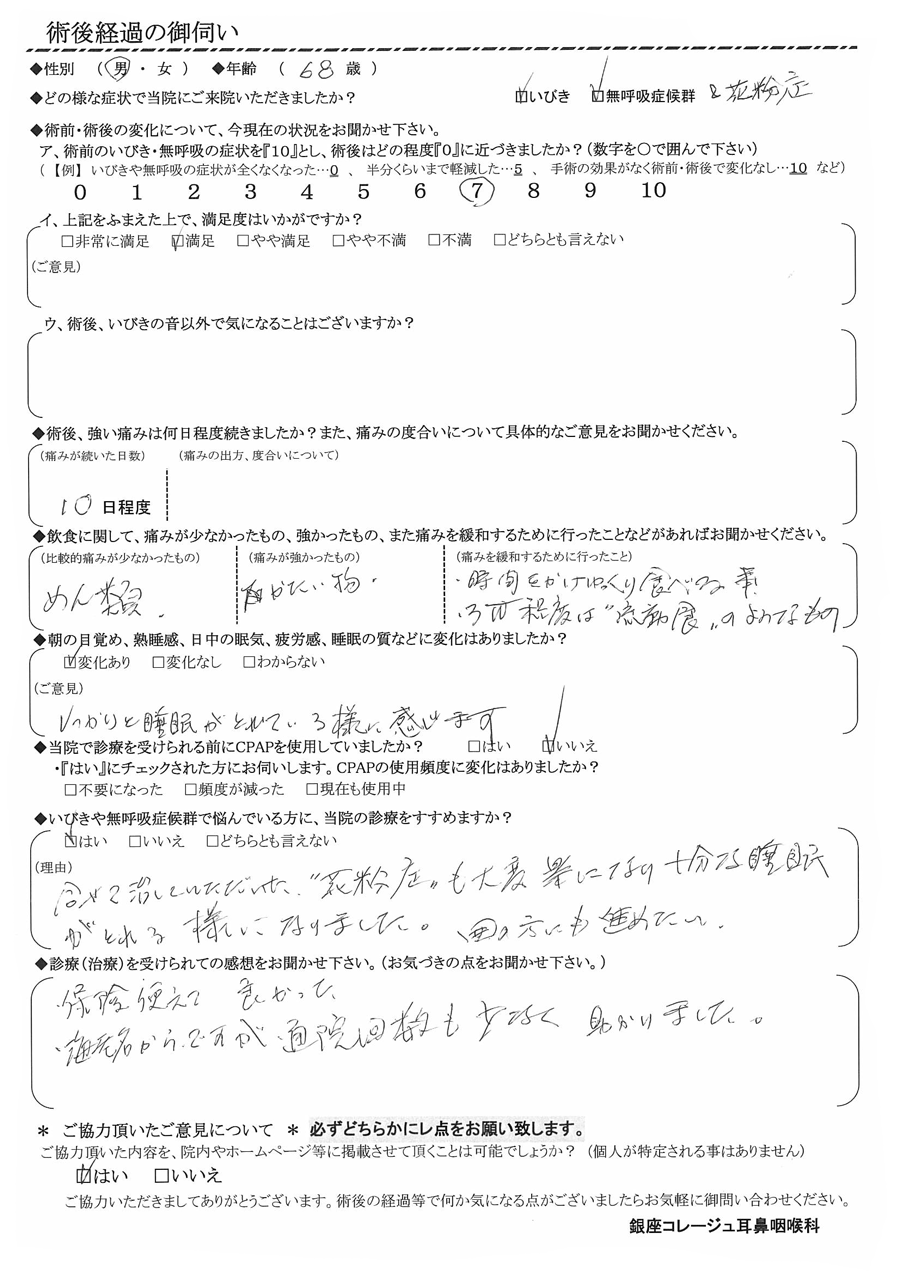 術後経過の御伺い
◆性別 （ 男 ・ 女 ） ◆年齢 （ 68 歳 ）
◆どの様な症状で当院にご来院いただきましたか？ ☑いびき ☑無呼吸症候群 & 花粉症
◆術前・術後の変化について、今現在の状況をお聞かせ下さい。
ア、術前のいびき・無呼吸の症状を『10』とし、術後はどの程度『0』に近づきましたか？（数字を〇で囲んで下さい）
（【例】 いびきや無呼吸の症状が全くなくなった…0 、 半分くらいまで軽減した…5 、 手術の効果がなく術前・術後で変化なし…10 など）
0 1 2 3 4 5 6 7 8 9 10
イ、上記をふまえた上で、満足度はいかがですか？
□非常に満足 ☑満足 □やや満足 □やや不満 □不満 □どちらとも言えない
（ご意見）
ウ、術後、いびきの音以外で気になることはございますか？
◆術後、強い痛みは何日程度続きましたか？また、痛みの度合いについて具体的なご意見をお聞かせください。
（痛みが続いた日数） （痛みの出方、度合いについて）
10 日程度
◆飲食に関して、痛みが少なかったもの、強かったもの、また痛みを緩和するために行ったことなどがあればお聞かせください。
（比較的痛みが少なかったもの） （痛みが強かったもの） （痛みを緩和するために行ったこと）
めん類. かたい物. ・時間をかけゆっくり食べる事
程度は"流動食"のようなもの
◆朝の目覚め、熟睡感、日中の眠気、疲労感、睡眠の質などに変化はありましたか？
☑変化あり □変化なし □わからない
（ご意見）
しっかりと睡眠がとれている様に感じます
◆当院で診療を受けられる前にCPAPを使用していましたか？ □はい ☑いいえ
・『はい』にチェックされた方にお伺いします。CPAPの使用頻度に変化はありましたか？
□不要になった □頻度が減った □現在も使用中
◆いびきや無呼吸症候群で悩んでいる方に、当院の診療をすすめますか？
☑はい □いいえ □どちらとも言えない
（理由）
合せて治していただいた"花粉症"も大変楽になり十分な睡眠
がとれる様になりました。 周りの方にも進めたい.
◆診療（治療）を受けられての感想をお聞かせ下さい。（お気づきの点をお聞かせ下さい。）
・保険使えて 良かった
・海老名からですが通院回数も少なく 助かりました。
＊ ご協力頂いたご意見について ＊ 必ずどちらかにレ点をお願い致します。
ご協力頂いた内容を、院内やホームページ等に掲載させて頂くことは可能でしょうか？ （個人が特定される事はありません）
☑はい □いいえ
ご協力いただきましてありがとうございます。術後の経過等で何か気になる点がございましたらお気軽に御問い合わせください。
銀座コレージュ耳鼻咽喉科